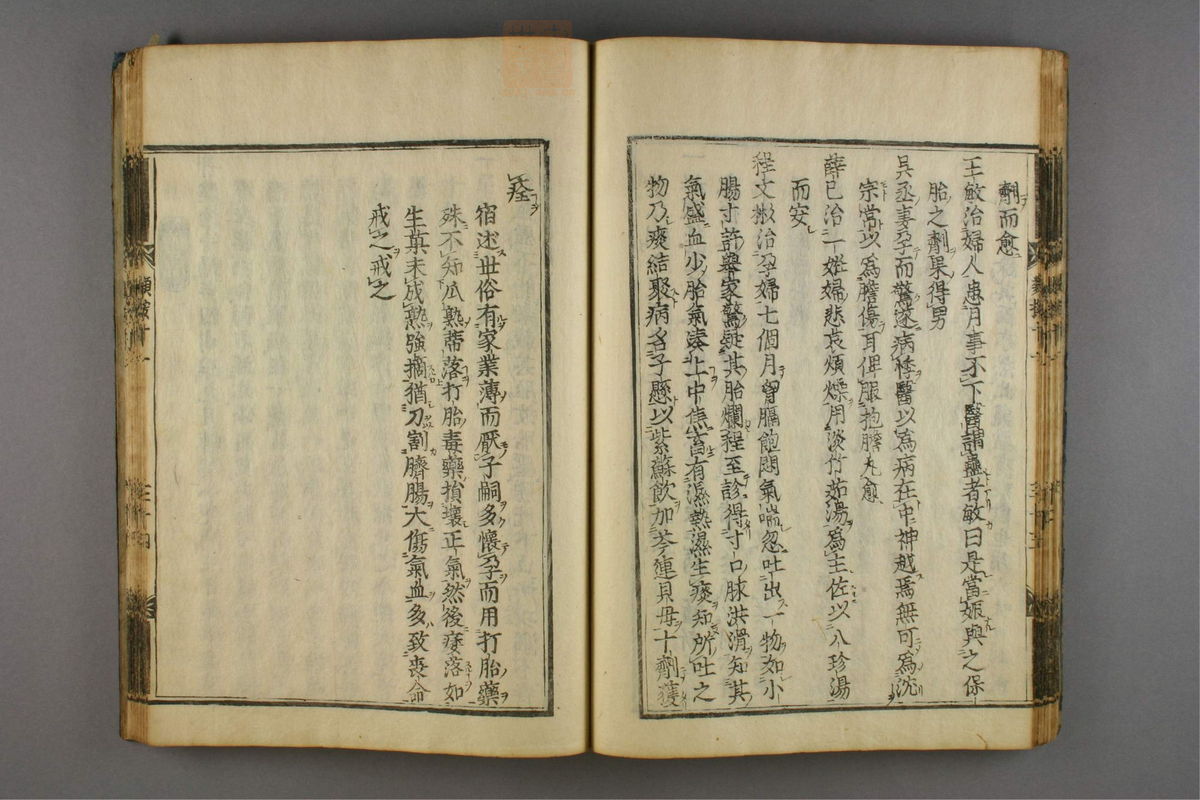 劑而愈
王敏治婦人患月事不下醫謂蠱者敏曰是當娠與之保
胎之劑果得男
吳丞妻孕而驚遂病悸醫以為病在中神越焉無可為沈
宗常以為膽傷耳俾服抱膽丸愈
薛已治一姙婦悲哀煩燥用淡竹茹湯為主佐以八珍湯
而安
程文彬治孕婦七個月胃膈飽悶氣喘忽吐出一物如小
腸寸許舉家驚疑其胎爛程至診得寸口脉洪滑知其
氣盛血少胎氣湊上中焦畜有濕熱濕生痰知所吐之
物乃痰結聚病名子懸以紫蘇飲加芩連貝母十劑獲
痊
宿述世俗有家業薄而厭子嗣多懷孕而用打胎藥
殊不知瓜熟蒂落打胎毒藥損壞正氣然後痿落如
生菓未成熟強摘猶刀割臍腸大傷氣血多致喪命
戒之戒之